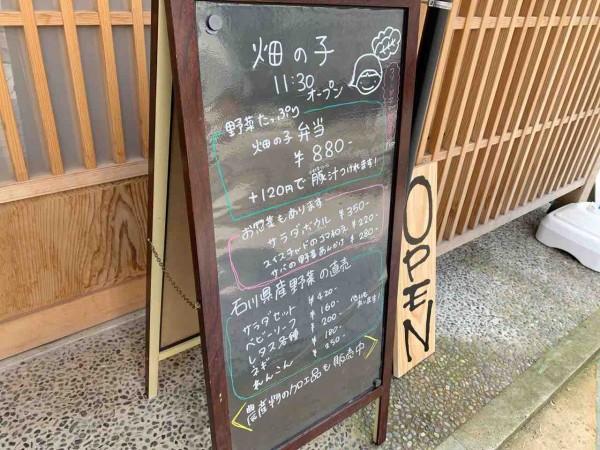 畑の子
11:30
オープン
野菜たっぷり
畑の子 弁当
¥880-
+120円で 豚汁つけれます!
お惣菜もあります
サラダボウル ¥350-
スイスチャードのゴマ和え ¥220-
サバの野菜あんかけ ¥280-
石川県産野菜の直売
サラダセット ¥420-
ベビーリーフ ¥160-
レタス各種 ¥200-
ネギ ¥180-
れんこん ¥250-
農産物の加工品も販売中
OPEN